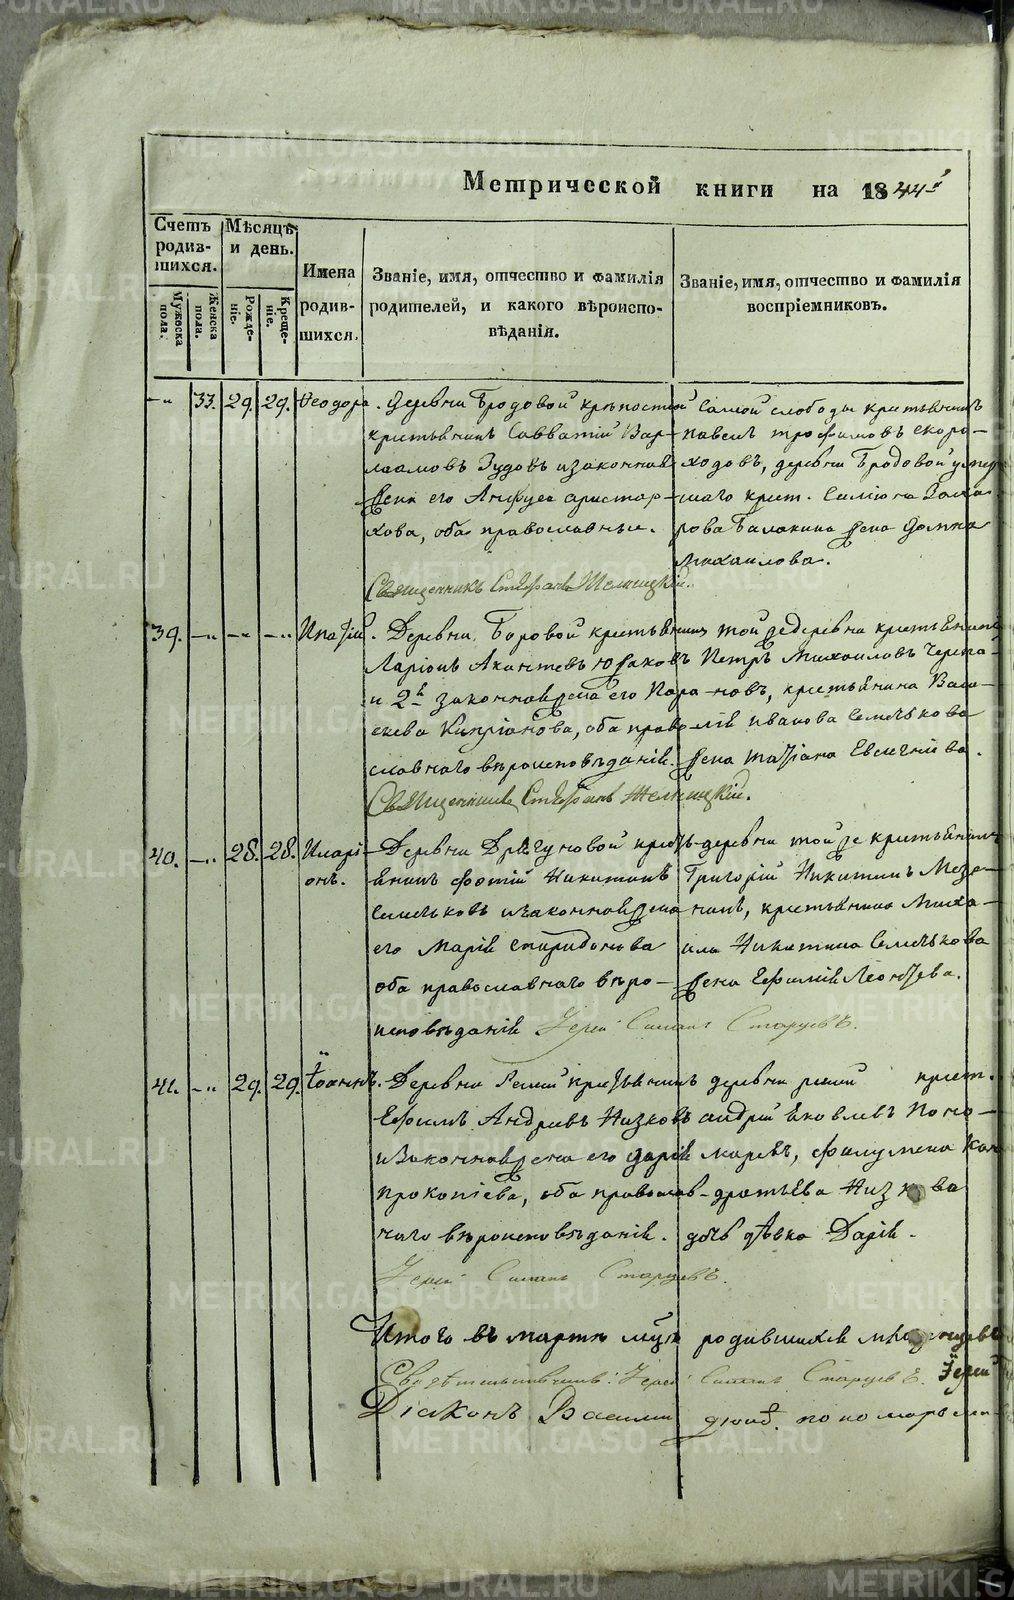 Метрической книги на 1844й
Счетъ родив-шихся.
Мѣсяцъ и день.
Имена родив-шихся.
Званіе, имя, отчество и фамилія родителей, и какого вѣроиспо-вѣданія.
Званіе, имя, отчество и фамилія воспріемниковъ.
Мужеска пола.
Женска пола.
Рожде-ніе.
Креще-ніе.
33. 29. 29. Ѳеодора.
Деревни Бродовой крѣпостной
крестьянинъ Савватій Вар-
лаамовъ Зудовъ и законная
жена его Анфуса Аристар-
хова, оба православные.
Священникъ Стефанъ
Самой слободы крестьянинъ
Павелъ Трофимовъ Скоро-
ходовъ, деревни Бродовой
шаго крест. Заха-
рова Балакина жена Домна
Михаилова.
39. Ипатій.
Деревни Боровой крестьянинъ
Ларіонъ Юшковъ
и 2я законная жена его Пара-
скева Кипріанова, оба право-
славнаго вѣроисповѣданія.
Священникъ Стефанъ
той же деревни крестьянинъ
Петръ Михаиловъ Черепа-
новъ, крестьянина Васи-
лія Иванова Сенькова
жена Татіана Евсигніева.
40. 28. 28. Иларі-
онъ.
Деревни крестья-
янинъ Фотій Никитинъ
Сеньковъ и законная жена
его Марія Спиридонова
оба православнаго вѣро-
исповѣданія Іерей Симеонъ Старцевъ.
деревни той же крестьянинъ
Григорій Никитинъ Мезе-
нинъ, крестьянина Миха-
ила Никитина Сенькова
жена Евфимія Леонтьева.
41. 29. 29. Іоаннъ.
Деревни крестьянинъ
Ефимъ Андреевъ Низковъ
и законная жена его Дарія
Прокопіева, оба православ-
наго вѣроисповѣданія.
Іерей Симеонъ Старцевъ.
деревни крест.
Андрей Яковлевъ Поно-
маревъ, Филумена Кон-
дратьева Низкова
дочь дѣвка Дарія.
Итого въ мартѣ мцѣ родившихся младенцевъ
Свидѣтельствовали: Іерей Симеонъ Старцевъ. Іерей
Діаконъ Василій
METRIKI.GASO-URAL.RU